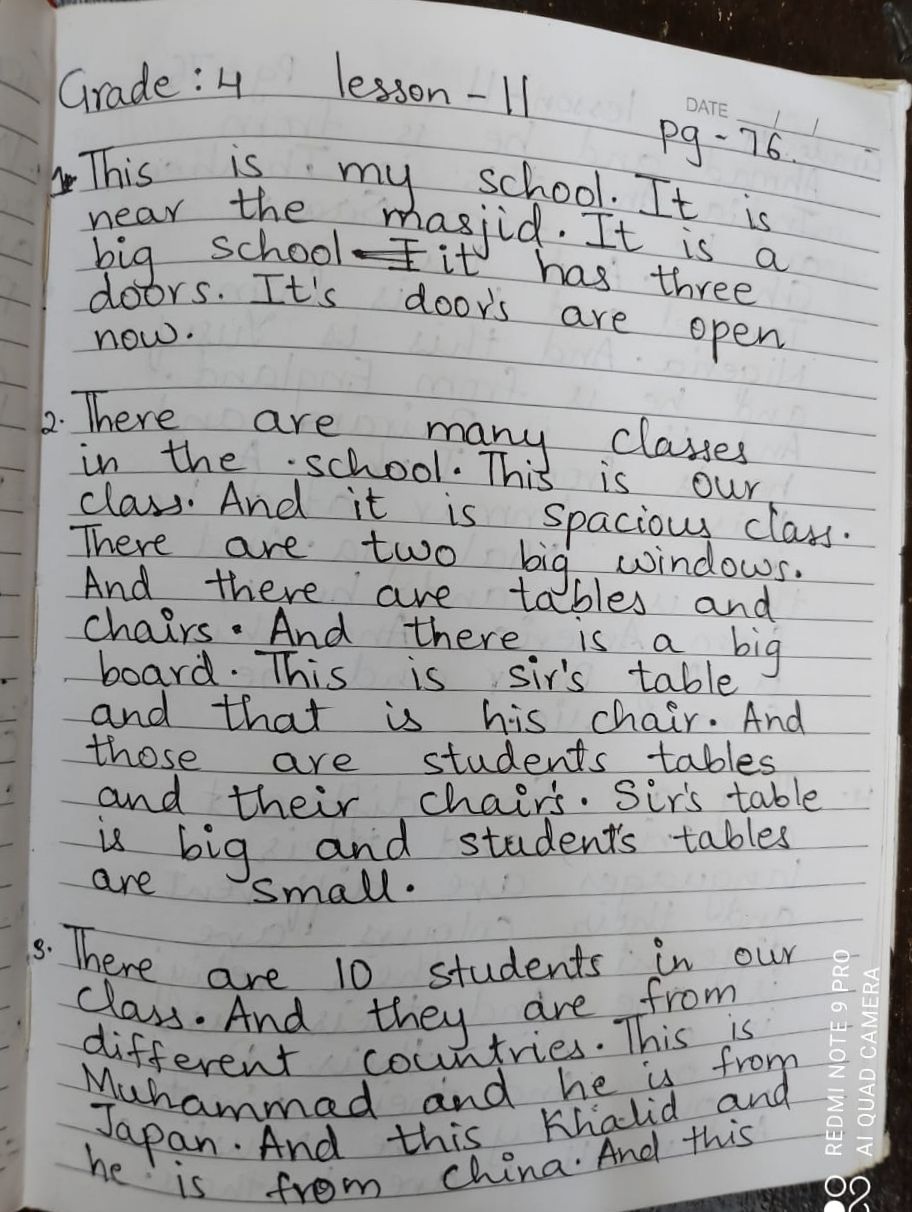 Grade : 4 lesson - 11
DATE / /
pg - 76.
1. This is my school. It is
near the masjid. It is a
big school it has three
doors. It's doors are open
now.
2. There are many classes
in the school. This is our
class. And it is spacious class.
There are two big windows.
And there are tables and
chairs. And there is a big
board. This is sir's table
and that is his chair. And
those are students tables
and their chairs. Sir's table
is big and student's tables
are small.
3. There are 10 students in our
class. And they are from
different countries. This is
Muhammad and he is from
Japan. And this Khalid and
he is from China. And this
REDMI NOTE 9 PRO
AI QUAD CAMERA